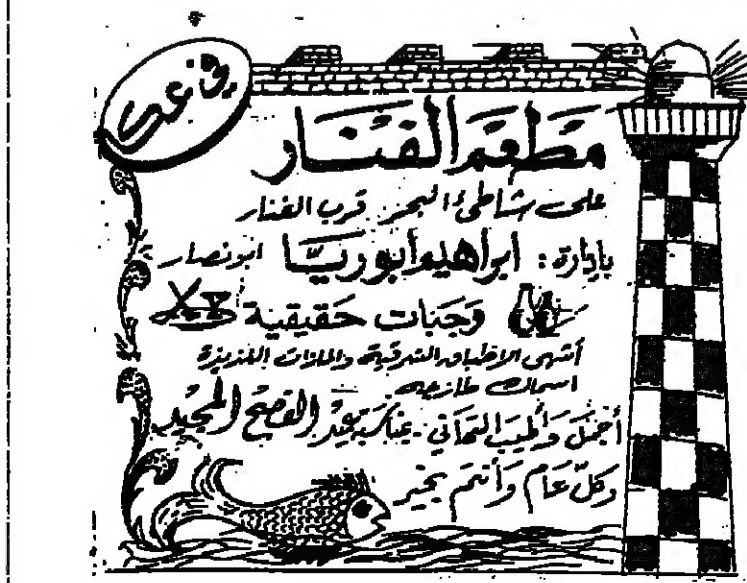 في عكا
مطعم الفنار
على شاطئ البحر قرب الفنار
بإدارة: ابراهيم ابو ريا ابو نصار
وجبات حقيقية
أشهى الاطباق الشرقية والمازات اللذيذة
اسماك طازجه
أجمل وأطيب التهاني بمناسبة عيد الفصح المجيد
وكل عام وأنتم بخير